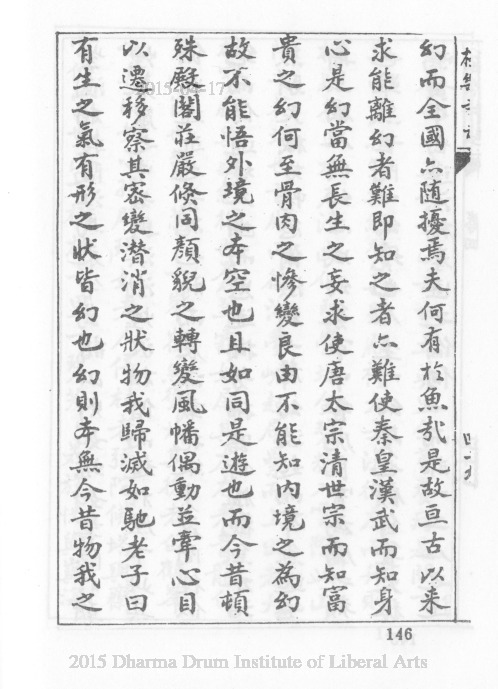 幻而全國亦随擾焉夫何有於魚㢤是故亘古以来
求能離幻者難即知之者亦難使秦皇漢武而知身
心是幻當無長生之妄求使唐太宗清世宗而知富
貴之幻何至骨肉之慘變良由不能知内境之為幻
故不能悟外境之夲空也且如同是遊也而今昔頓
殊殿閣莊嚴倏同顏貌之轉變風幡偶動並牽心目
以遷移察其密變潛消之狀物我歸滅如馳老子曰
有生之氣有形之狀皆幻也幻則夲無今昔物我之
146
2015-04-17
2015 Dharma Drum Institute of Liberal Arts